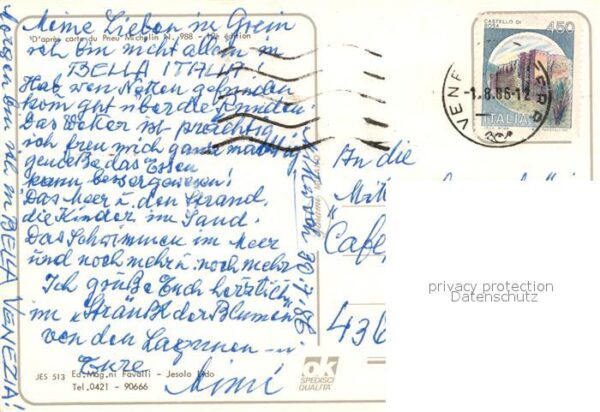 Meine Lieben in Grein
D'après carte du Pneu Michelin N. 988 - 12e édition
ich bin nicht allein in
BELLA ITALIA!
gefunden
kommt gut über die Runden.
Das Wetter ist prächtig
ich freu mich ganz mächtig
genieße das Essen
kann besser gewesen!
Das Meer u. den Strand,
die Kinder im Sand.
Das Schwimmen im Meer
und noch mehr u. noch mehr
Ich grüße Euch herzlich
im Sträußl der Blumen
von den Lagunen
Eure
Mimi
JES 513 Ed. Mag.ni Favalli - Jesolo Lido
Tel. 0421 - 90666
Morgen bin ich in BELLA VENEZIA!
30.7.86
OK
SPEDISCI
QUALITA'
CASTELLO DI
450
ITALIA
VENE
-1.8.86-12
An die
Café
436
privacy protection
Datenschutz